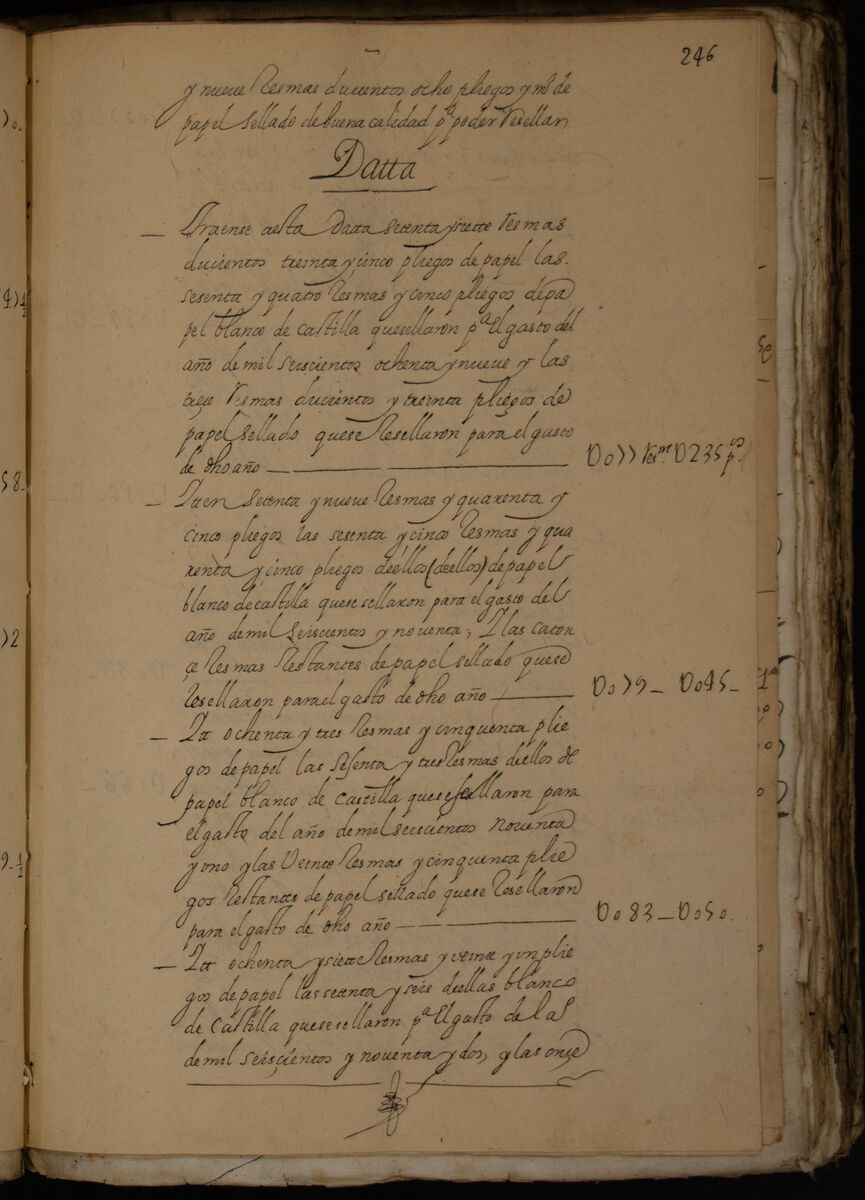 246
y nueve Resmas ducientos ocho pliegos y mº de
papel sellado de buena calidad pª poder Resellar
Datta
Traense aesta Data setenta ysiette resmas
ducientos treinta y cinco pliegos de papel las
sesenta y quatro Resmas y cinco pliegos depa
pel blanco de castilla quesellaron pª El gasto del
año de mil seiscientos ochenta ynueve y las
treçe resmas ducientos y treinta pliegos de
papel sellado quese Resellaron para el gasto
de dho año — Do77 Resmˢ D235 pºˢ
Itten setenta y nueve Resmas y quarenta y
cinco pliegos las sesenta y cinco Resmas y qua
renta y cinco pliegos deellos (deellos) de papel
blanco de castilla quese sellaron para el gasto del
año de mil seiscientos y noventa, Y las cator
çe Resmas Restantes de papel sellado quese
resellaron para el gasto de dho año — Do79 — Do45 —
Itt ochenta y tres Resmas y cinquenta plie
gos de papel las sesenta y tres Resmas dellos de
papel blanco de castilla quese sellaron para
el gasto del año de mil seiscientos noventa
y uno y las Veinte Resmas y cinquenta plie
gos Restantes de papel sellado quese Resellaron
para el gasto de dho año — Do83 — Do50.
Itt ochenta ysiette Resmas y veinte y un plie
gos de papel las setenta y seis dellas blanco
de castilla quese sellaron pª El gasto de la
de mil seisçientos y noventa y dos, y las onçe